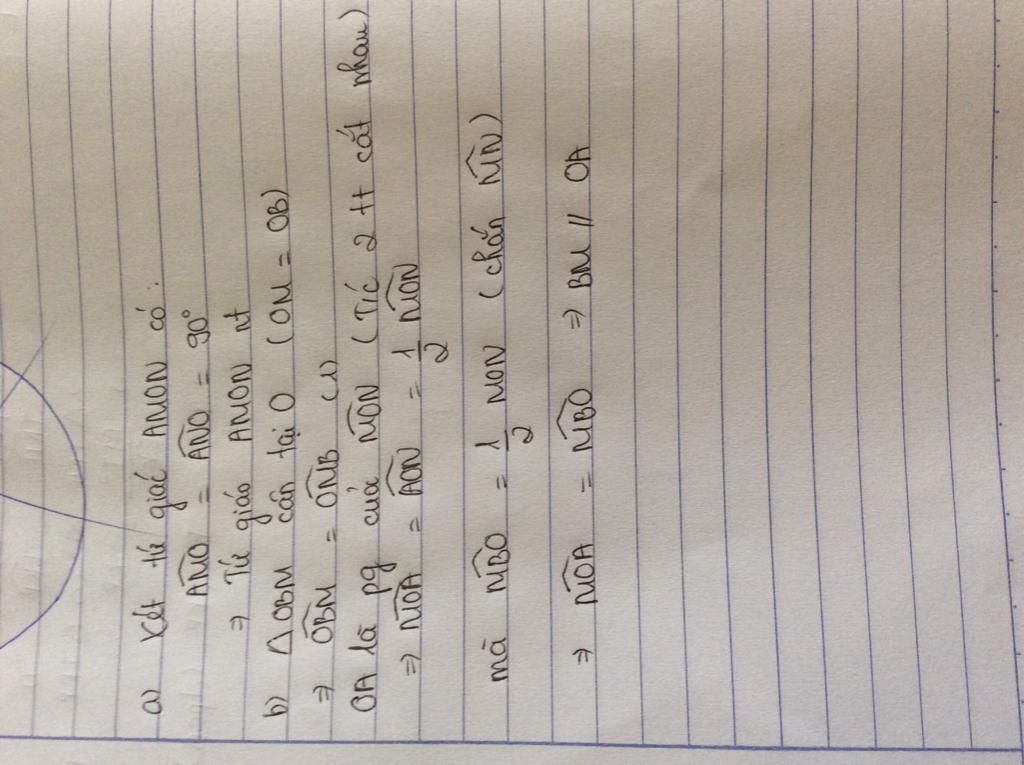 a) Xét tứ giác AMON có:
$\widehat{AMO}$ = $\widehat{ANO}$ = 90°
⇒ Tứ giác AMON nt
b) △OBM cân tại O (OM = OB)
⇒ $\widehat{OBM}$ = $\widehat{OMB}$ (1)
OA là pg của $\widehat{MON}$ (T/c 2 tt cắt nhau)
⇒ $\widehat{MOA}$ = $\widehat{AON}$ = $\frac{1}{2}$ $\widehat{MON}$
mà $\widehat{MBO}$ = $\frac{1}{2}$ MON (chắn $\widehat{MN}$)
⇒ $\widehat{MOA}$ = $\widehat{MBO}$ ⇒ BM // OA